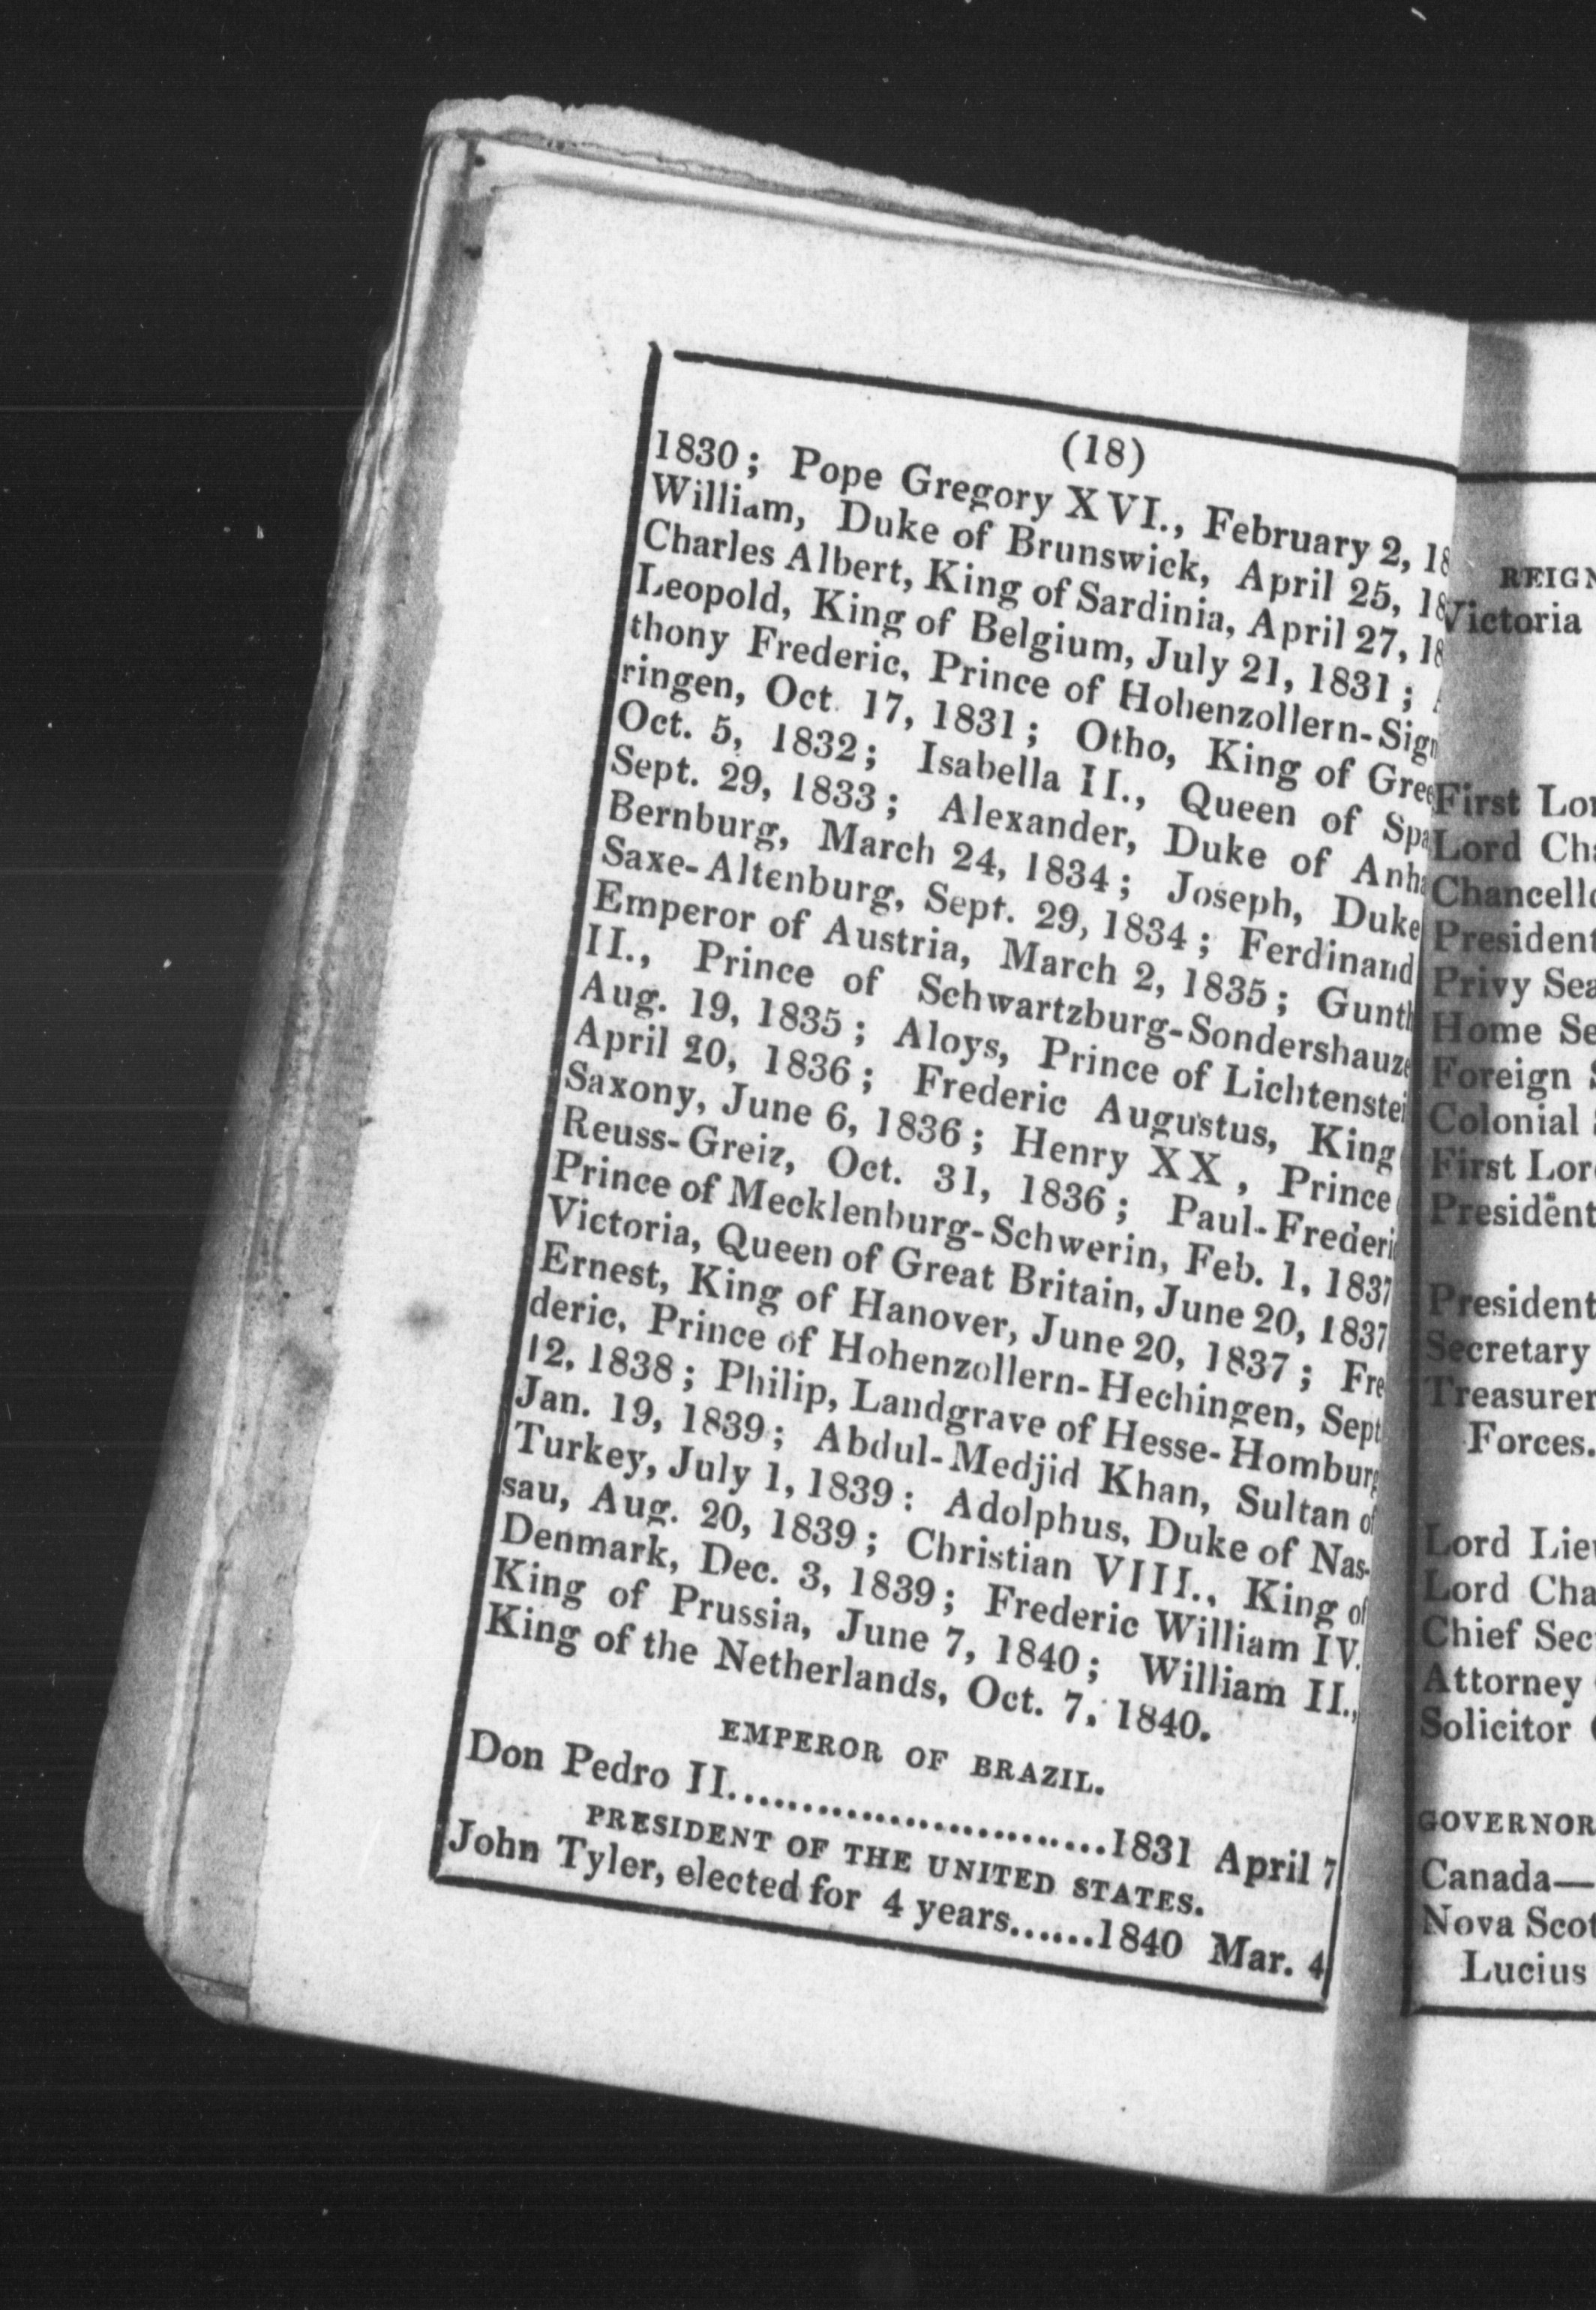 (18)
1830; Pope Gregory XVI., February 2,
William, Duke of Brunswick, April 25,
Charles Albert, King of Sardinia, April 27,
Leopold, King of Belgium, July 21, 1831;
thony Frederic, Prince of Hohenzollern-Sig
ringen, Oct. 17, 1831; Otho, King of Gree
Oct. 5, 1832; Isabella II., Queen of Spa
Sept. 29, 1833; Alexander, Duke of Anha
Bernburg, March 24, 1834; Joseph, Duke
Saxe-Altenburg, Sept. 29, 1834; Ferdinand
Emperor of Austria, March 2, 1835; Gunth
II., Prince of Schwartzburg-Sondershauze
Aug. 19, 1835; Aloys, Prince of Lichtenstei
April 20, 1836; Frederic Augustus, King
Saxony, June 6, 1836; Henry XX, Prince
Reuss-Greiz, Oct. 31, 1836; Paul-Frederi
Prince of Mecklenburg-Schwerin, Feb. 1, 1837
Victoria, Queen of Great Britain, June 20, 1837
Ernest, King of Hanover, June 20, 1837; Fre
deric, Prince of Hohenzollern-Hechingen, Sept
12, 1838; Philip, Landgrave of Hesse-Homburg
Jan. 19, 1839; Abdul-Medjid Khan, Sultan of
Turkey, July 1, 1839: Adolphus, Duke of Nas-
sau, Aug. 20, 1839; Christian VIII., King of
Denmark, Dec. 3, 1839; Frederic William IV.
King of Prussia, June 7, 1840; William II.,
King of the Netherlands, Oct. 7, 1840.
EMPEROR OF BRAZIL.
Don Pedro II..........................1831 April 7
PRESIDENT OF THE UNITED STATES.
John Tyler, elected for 4 years......1840 Mar. 4
REIGN
Victoria
First Lor
Lord Cha
Chancello
President
Privy Sea
Home Se
Foreign S
Colonial
First Lor
President
President
Secretary
Treasurer
Forces.
Lord Lieu
Lord Cha
Chief Sec
Attorney
Solicitor
GOVERNOR
Canada—
Nova Scot
Lucius